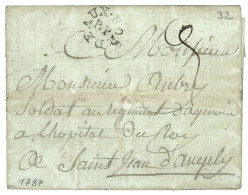 32
Monsieur
Monsieur Aubry
Soldat au regiment d'agenois
a L'hopital du Roy
a Saint Jean d'angely
1787